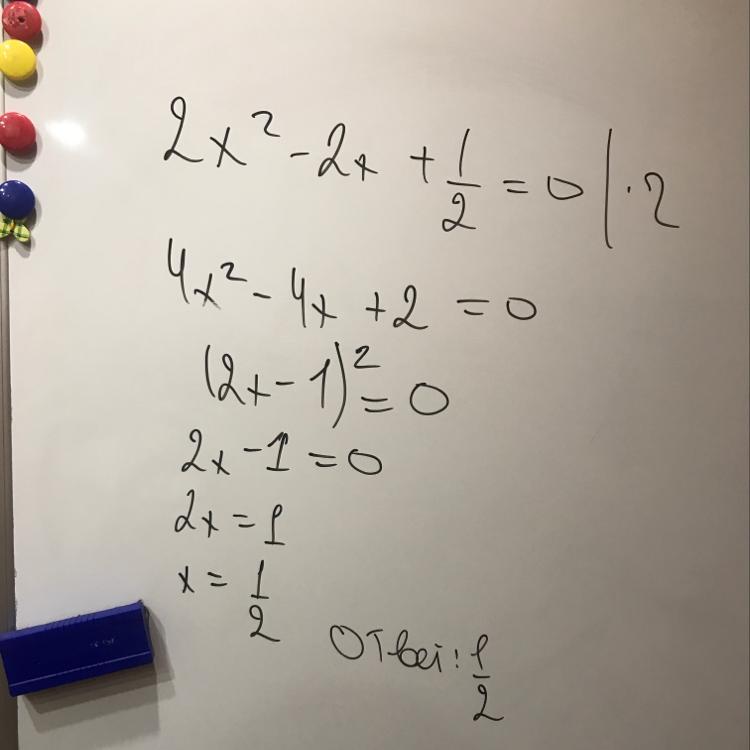 2x² - 2x + 1/2 = 0 | · 2
4x² - 4x + 2 = 0
(2x - 1)² = 0
2x - 1 = 0
2x = 1
x = 1/2
Ответ: 1/2